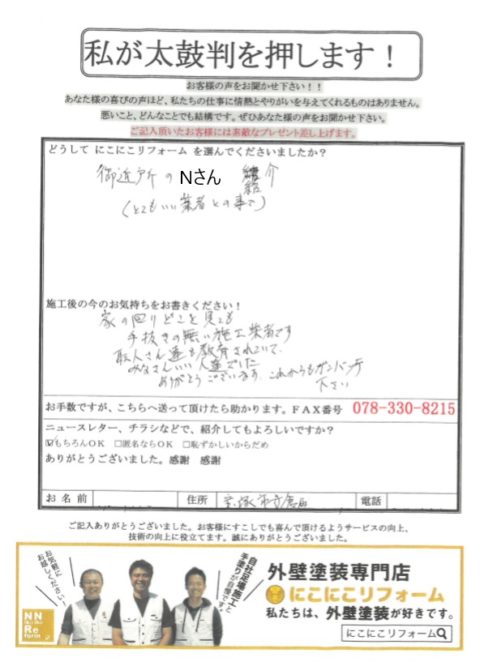 私が太鼓判を押します！
お客様の声をお聞かせ下さい！！
あなた様の喜びの声ほど、私たちの仕事に情熱とやりがいを与えてくれるものはありません。
悪いこと、どんなことでも結構です。ぜひあなた様の声をお聞かせ下さい。
ご記入頂いたお客様には素敵なプレゼント差し上げます。
どうして にこにこリフォーム を選んでくださいましたか？
御近所の Nさん 紹介
(とてもいい業者との事で)
施工後の今のお気持ちをお書きください！
家の回りどこを見ても
手抜きの無い施工業者です
職人さん達も教育されていて、
みなさんいい人達でした
ありがとうございます。これからもガンバッテ
下さい
お手数ですが、こちらへ送って頂けたら助かります。FAX番号 078-330-8215
ニュースレター、チラシなどで、紹介してもよろしいですか？
☑もちろんOK □匿名ならOK □恥ずかしいからだめ
ありがとうございました。感謝 感謝
お名前 住所 宝塚市 電話
ご記入ありがとうございました。お客様にすこしでも喜んで頂けるようサービスの向上、
技術の向上に役立てます。誠にありがとうございました。
お気軽に
お越しください！
自社足場施工と
手塗りが自慢です！
外壁塗装専門店
にこにこリフォーム
私たちは、外壁塗装が好きです。
にこにこリフォーム
NN
Re